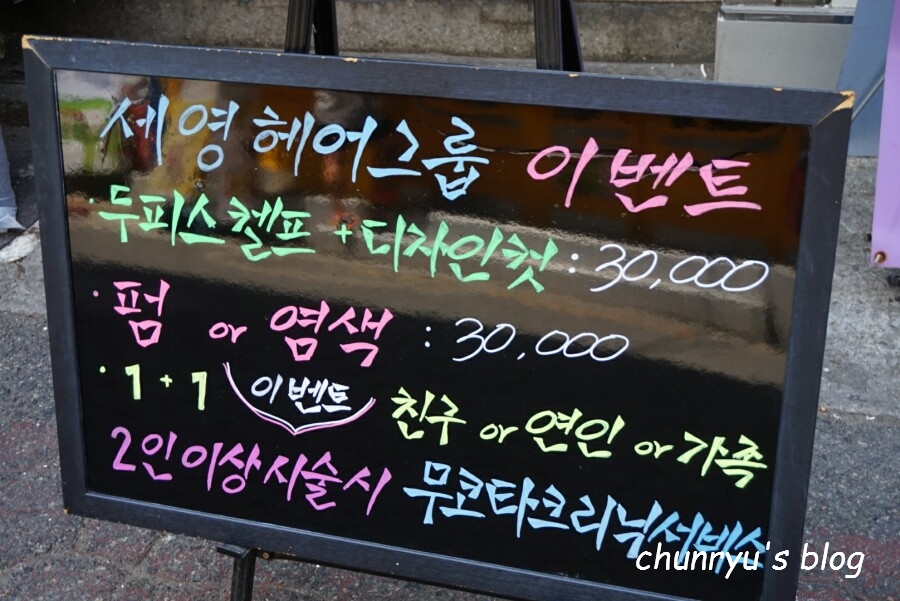 세영헤어그룹 이벤트
·두피스켈프+디자인컷:30,000
·펌 or 염색 :30,000
·1+1 이벤트 친구 or 연인 or 가족
2인이상시술시 무코타크리닉서비스
chunryu's blog